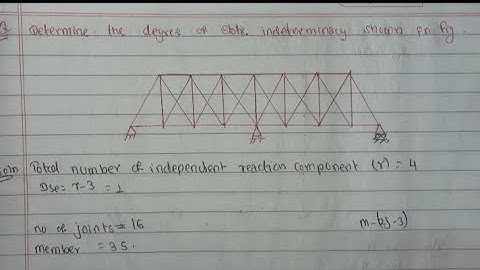 Determine the degree of static indeterminacy shown in fig.
Soln Total number of independent reaction component (r) = 4
Dse= r-3 = 1
no of joints = 16
m-(2j-3)
member = 35.